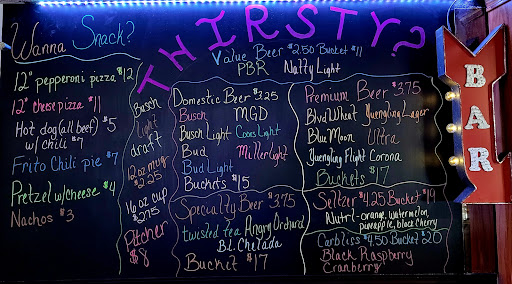 Wanna Snack?
12" pepperoni pizza $12
12" cheese pizza $11
Hot dog (all beef) $5
w/ chili $7
Frito Chili pie $7
Pretzel w/cheese $4
Nachos $3
THIRSTY?
Value Beer $2.50 Bucket $11
PBR Natty Light
Busch
light
draft
12 oz mug
$2.25
16 oz cup
$2.75
Pitcher
$8
Domestic Beer $3.25
Busch MGD
Busch Light Coors Light
Bud Miller Light
Bud Light
Buckets $15
Specialty Beer $3.75
twisted tea Angry Orchard
B.L. Chelada
Bucket $17
Premium Beer $3.75
Blvd Wheat Yuengling Lager
Blue Moon Ultra
Yuengling Flight Corona
Buckets $17
Seltzer $4.25 Bucket $19
Nutrl-orange, watermelon,
pineapple, black cherry
Carbliss $4.50 Bucket $20
Black Raspberry
Cranberry
BAR